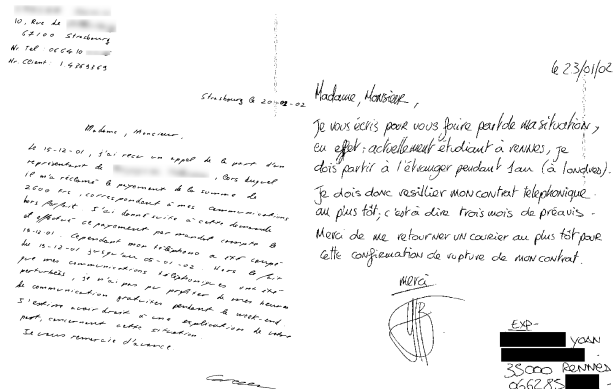 10, Rue de
67100 Strasbourg
Nr Tel : 066410
Nr Client : 1.4869869
Strasbourg le 20-02-02
Madame, Monsieur,
Le 15-12-01, j'ai recu un appel de la part d'un
representant de , lors duquel
il m'a réclamé le payement de la somme de
2600 frs, correspondant à mes communications
hors forfait. J'ai donné suite à cette demande
et effectué ce payement par mandat compte le
18-12-01. Cependant mon téléphone a été coupé
du 15-12-01 jusqu'au 05-01-02. Vers le fait
que mes communications téléphoniques ont été
perturbées, je n'ai pas pu profiter de mes heures
de communication gratuites pendant le week-end.
J'estime avoir droit à une explication de votre
part, concernant cette situation.
Je vous remercie d'avance.
le 23/01/02
Madame, Monsieur,
Je vous écris pour vous faire part de ma situation,
en effet : actuellement étudiant à RENNES, je
dois partir à l'étranger pendant 1 an (à Londres).
Je dois donc resillier mon contrat telephonique
au plus tôt, c'est à dire trois mois de préavis.
Merci de me retourner un courier au plus tôt pour
cette confirmation de rupture de mon contrat.
merci
EXP-
YOAN
35000 RENNES
066285